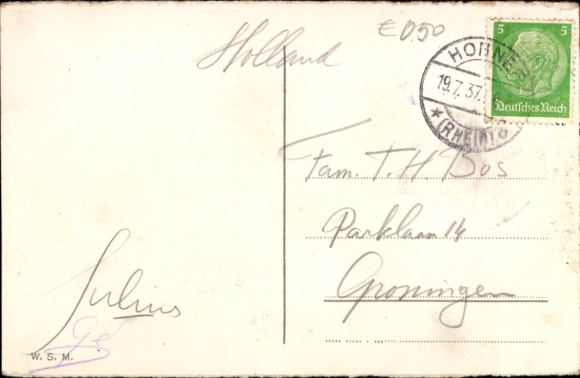 Holland
€ 0.50
5 5
Deutsches Reich
HONNEF
19.7.37.
★ (RHEIN) c
Fam. T. H. Bos
Parklaan 14
Groningen
Julius
W. S. M.